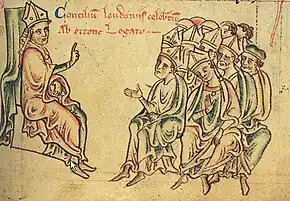 Concilium londoniis celebratū
Ab ottone Legato